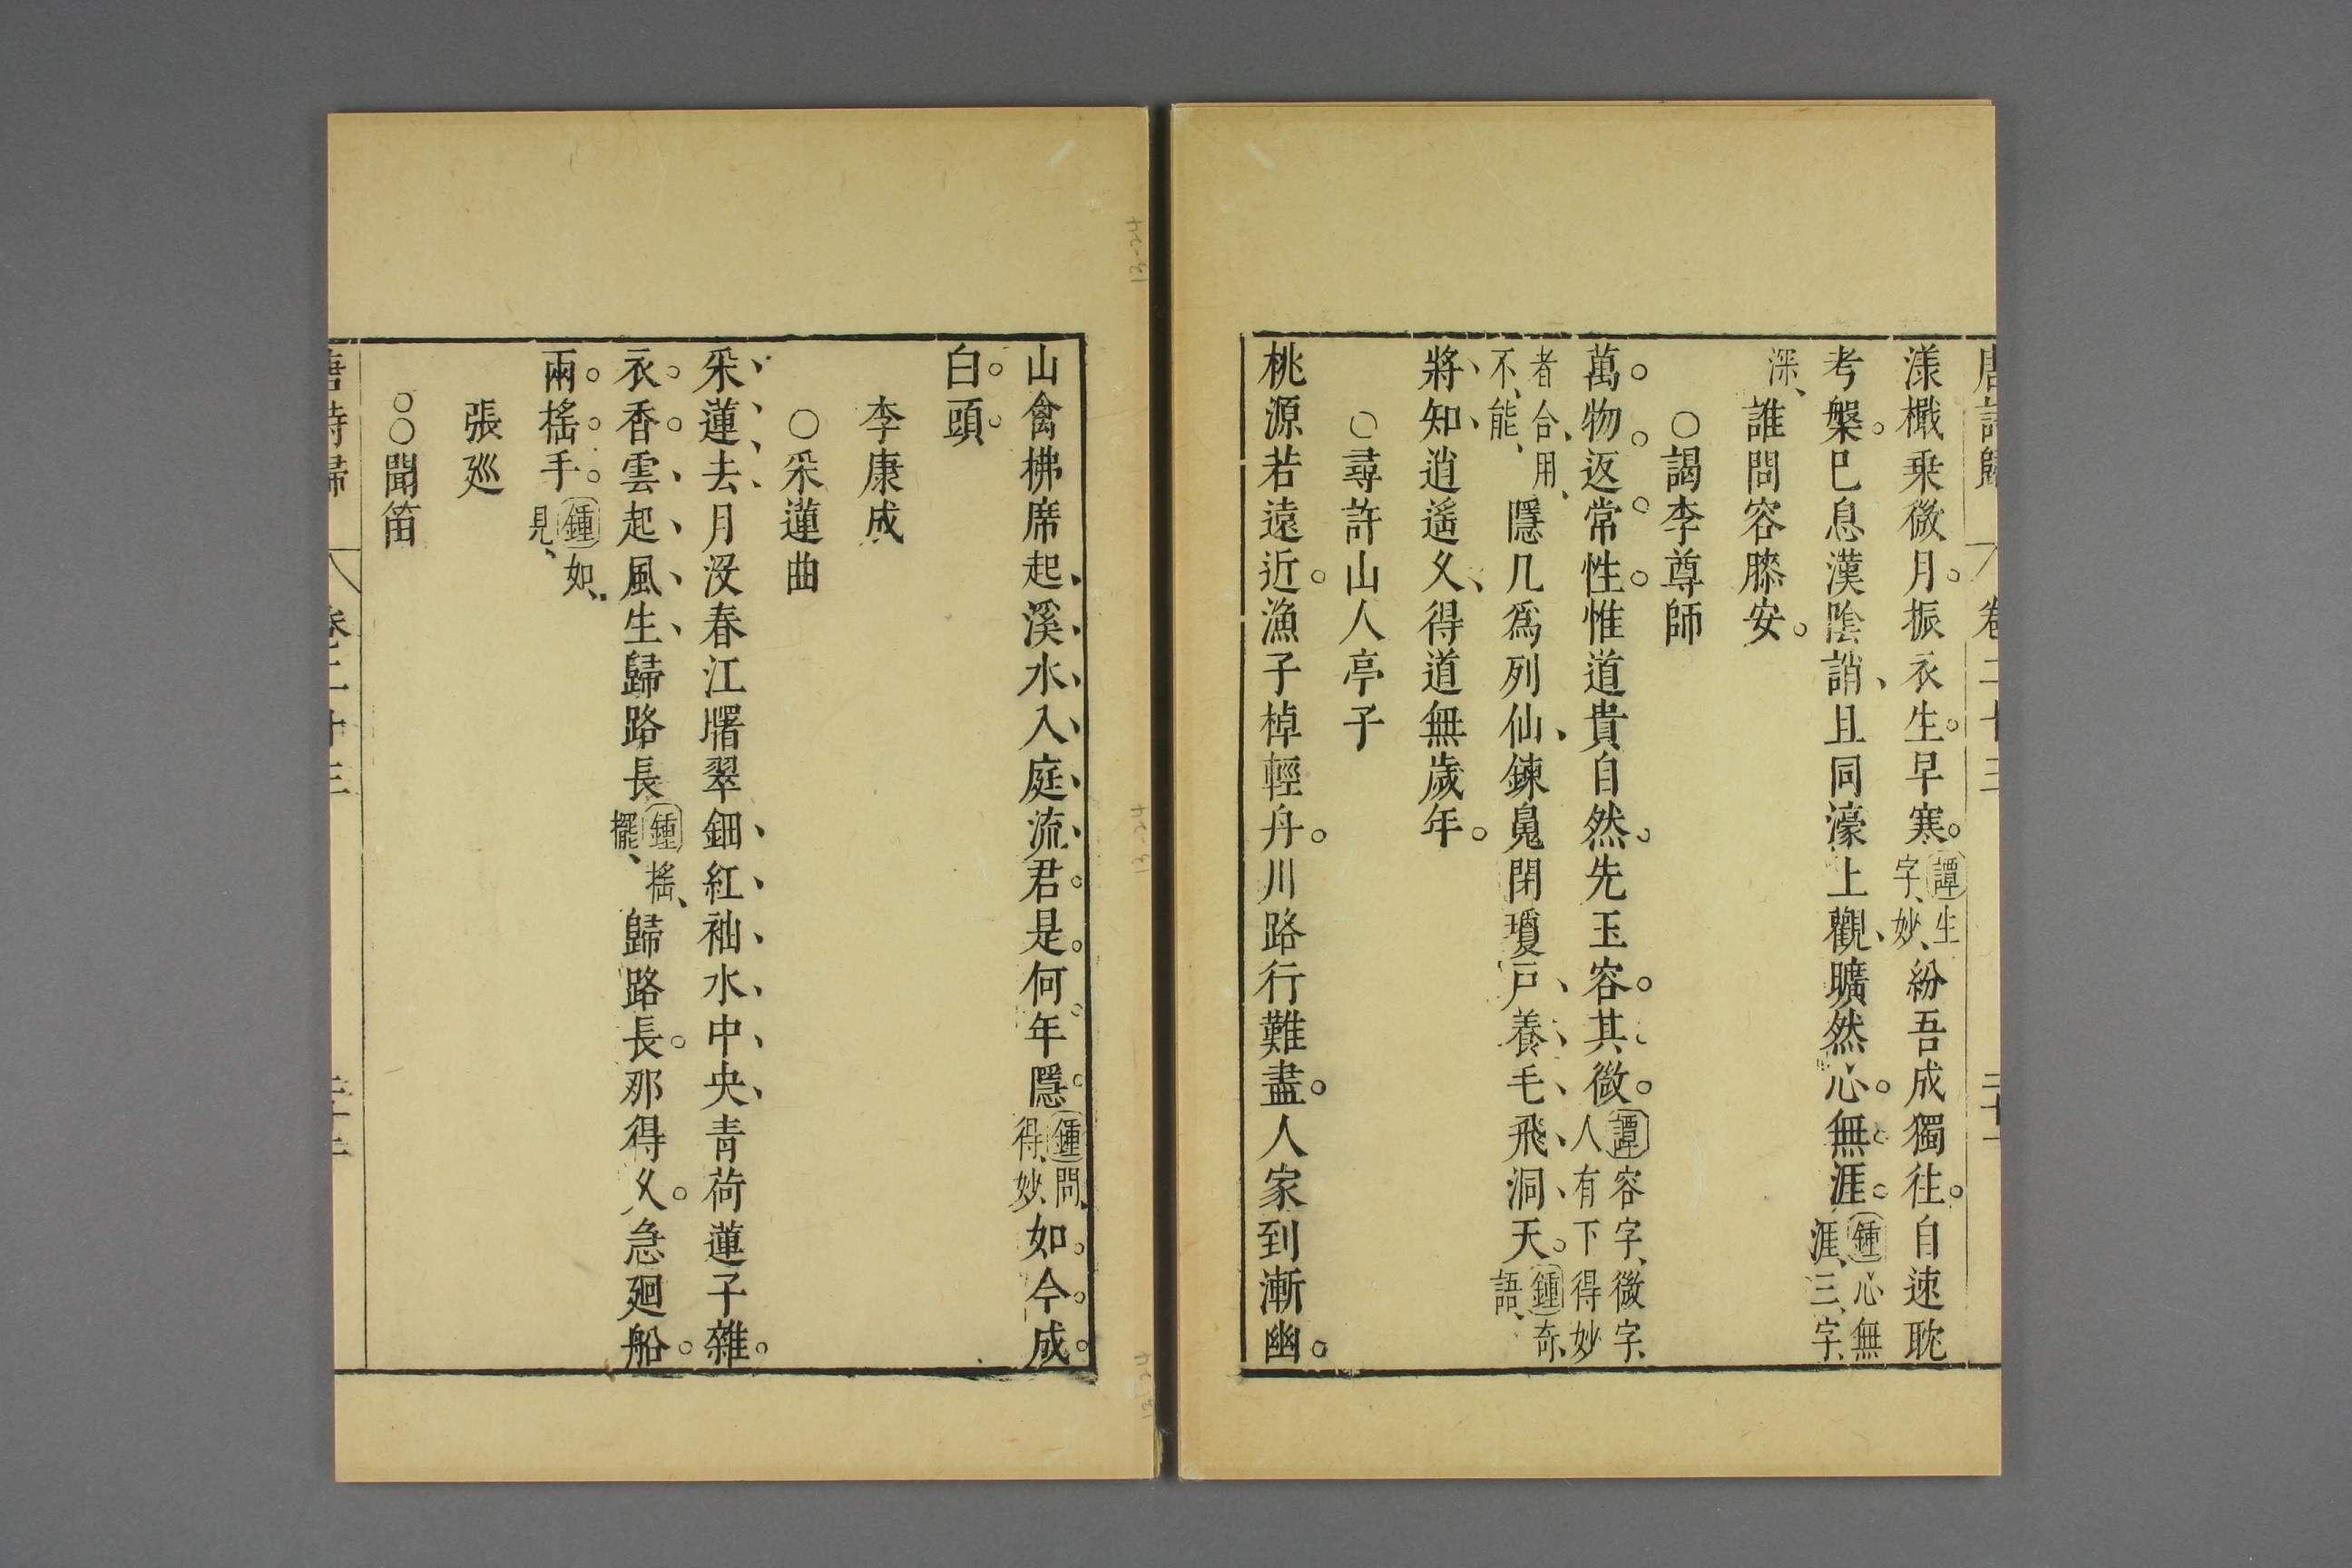 唐詩歸 卷二十三 二十一
漾檝乗微月振衣生早寒譚生字妙紛吾成獨往自速耽
考槃巳息漢陰誚且同濠上觀曠然心無涯鍾心無涯三字
深誰問容膝安
○謁李尊師
萬物返常性惟道貴自然先玉容其微譚容字微字人有下得妙
者合用不能隱几爲列仙鍊䰟閉瓊戸養毛飛洞天鍾奇語
將知逍遙乆得道無歲年
○尋許山人亭子
桃源若遠近漁子棹輕舟川路行難盡人家到漸幽
山禽拂席起溪水入庭流君是何年隱鍾問得妙如今成
白頭
李康成
○采蓮曲
采蓮去月沒春江曙翠鈿紅袖水中央青荷蓮子雜
衣香雲起風生歸路長鍾搖擺歸路長那得乆急廻船
兩搖手鍾如見
張廵
○○聞笛
唐詩歸 卷二十三